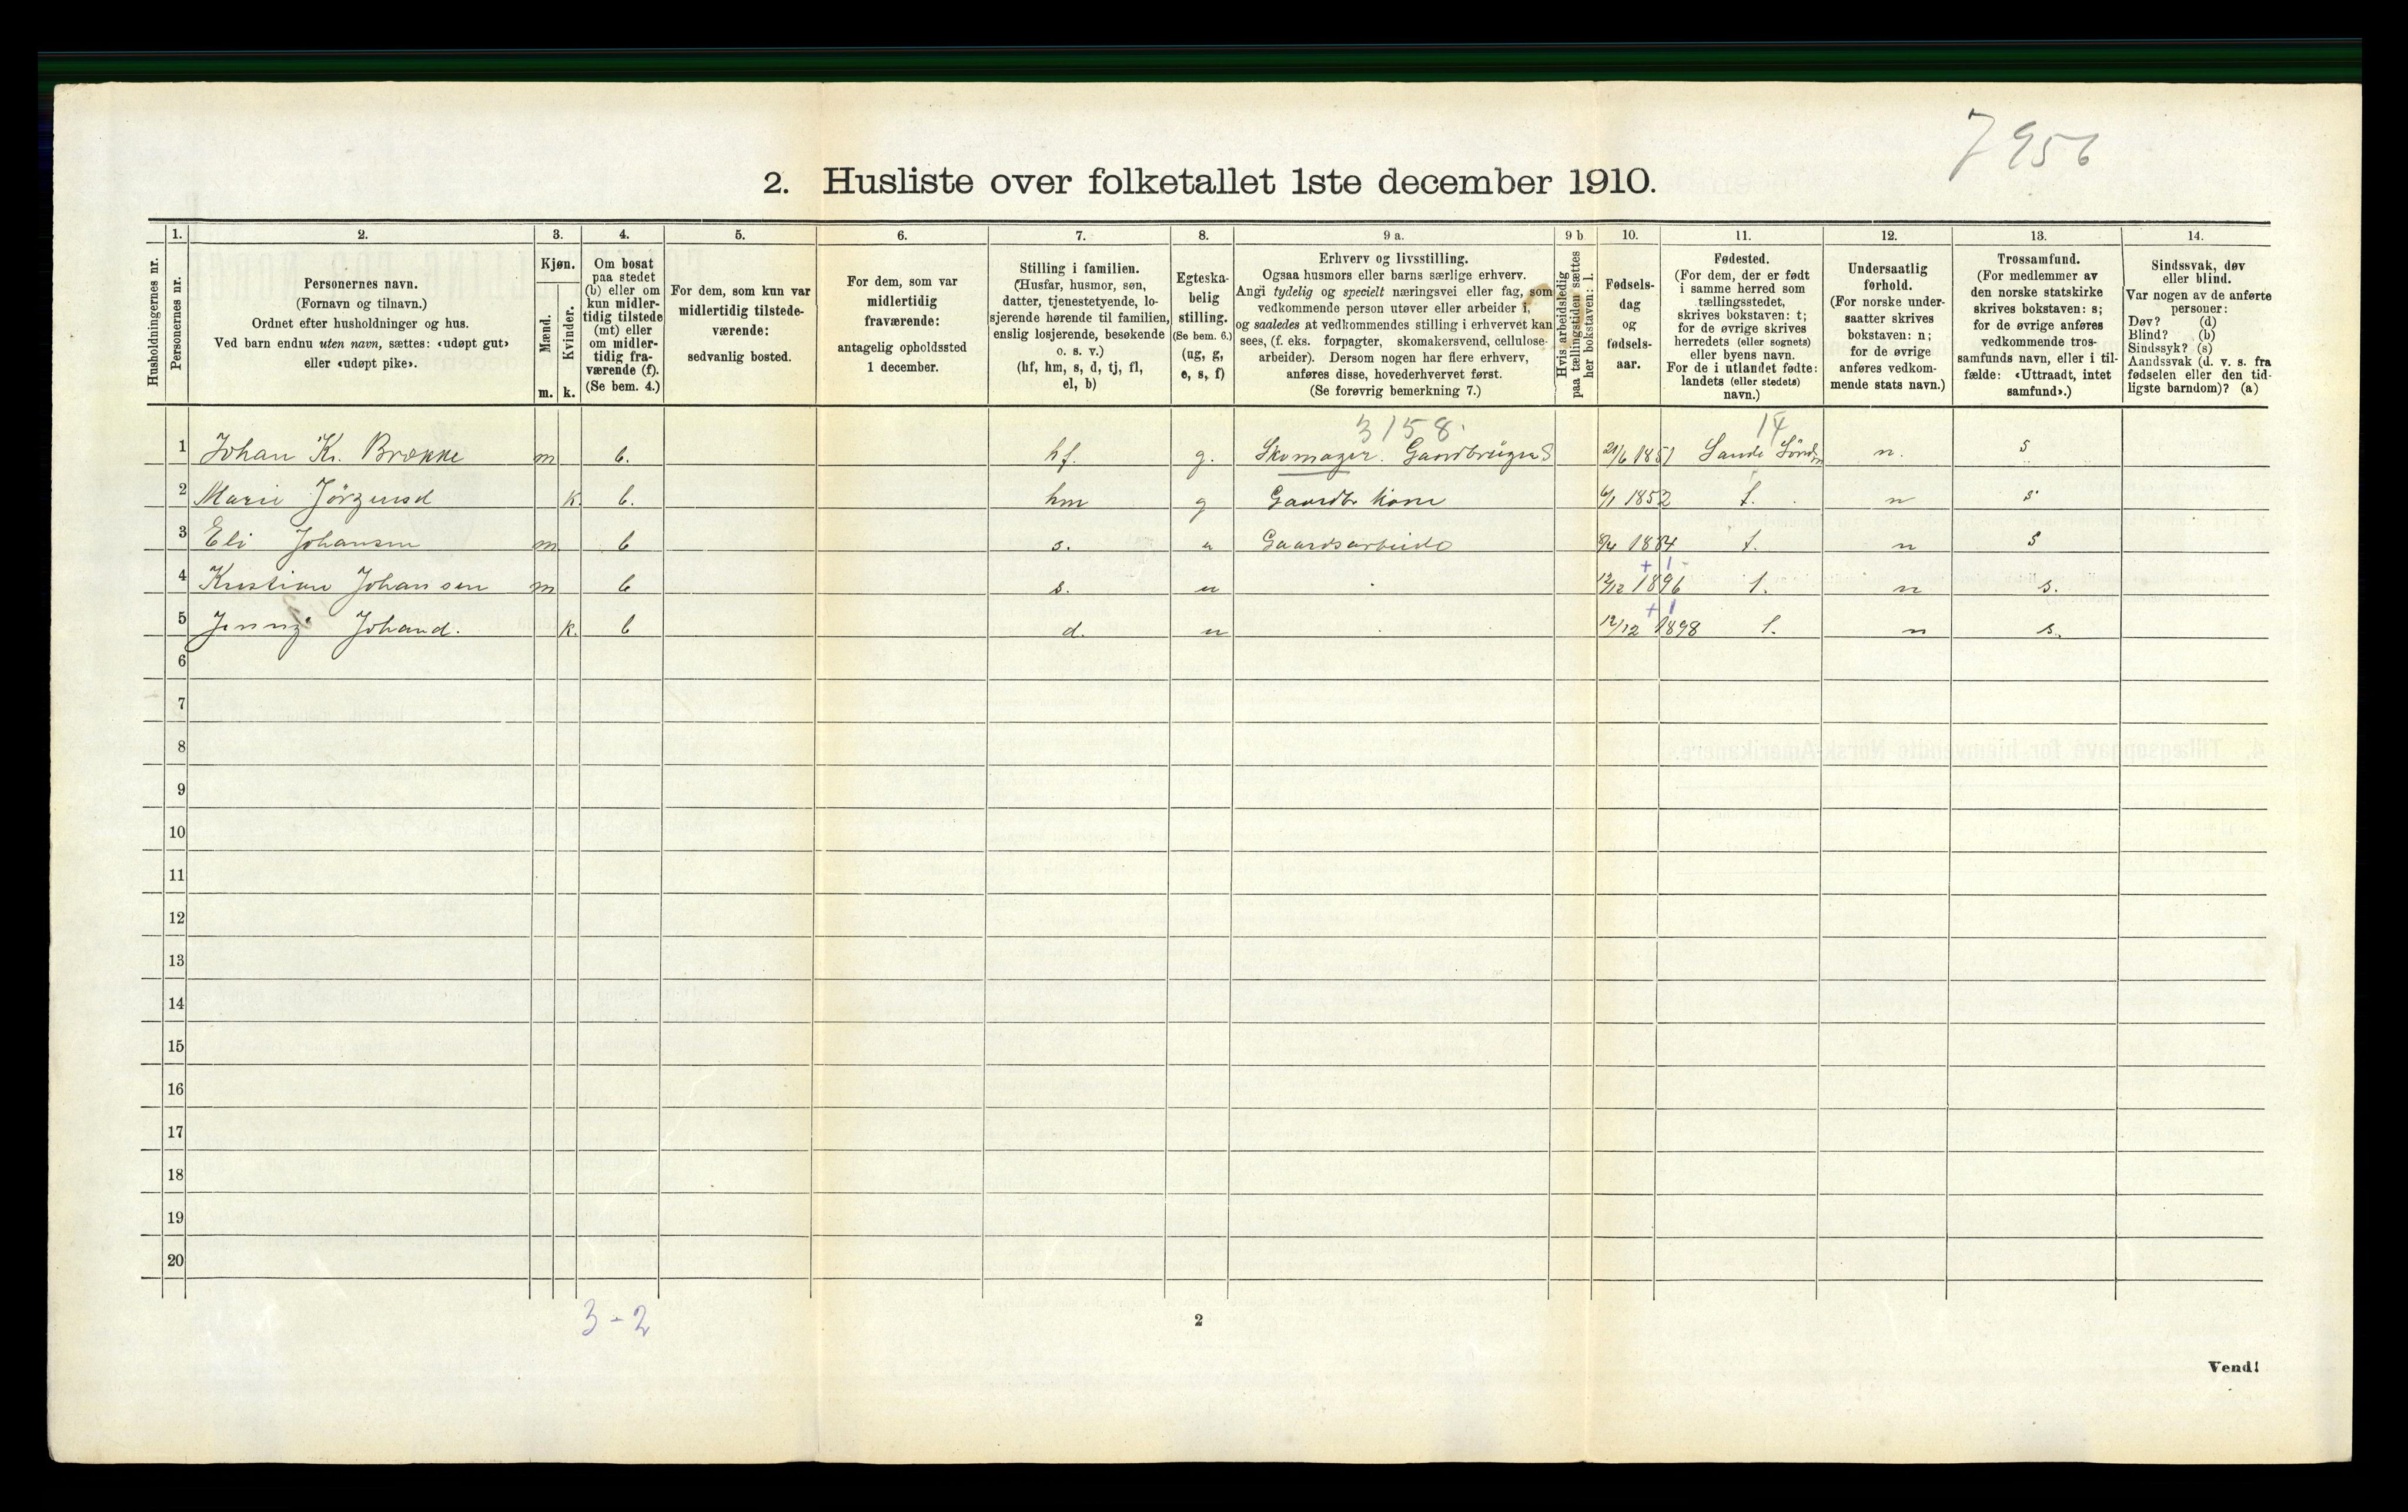 7956
2. Husliste over folketallet 1ste december 1910.
Husholdningernes nr.
1.
Personernes nr.
2.
Personernes navn.
(Fornavn og tilnavn.)
Ordnet efter husholdninger og hus.
Ved barn endnu uten navn, sættes: «udøpt gut»
eller «udøpt pike».
3.
Kjøn.
Mænd.
Kvinder.
m. k.
4.
Om bosat
paa stedet
(b) eller om
kun midler-
tidig tilstede
(mt) eller
om midler-
tidig fra-
værende (f).
(Se bem. 4.)
5.
For dem, som kun var
midlertidig tilstede-
værende:
sedvanlig bosted.
6.
For dem, som var
midlertidig
fraværende:
antagelig opholdssted
1 december.
7.
Stilling i familien.
(Husfar, husmor, søn,
datter, tjenestetyende, lo-
sjerende hørende til familien,
enslig losjerende, besøkende
o. s. v.)
(hf, hm, s, d, tj, fl,
el, b)
8.
Egteska-
belig
stilling.
(Se bem. 6.)
(ug, g,
e, s, f)
9 a.
Erhverv og livsstilling.
Ogsaa husmors eller barns særlige erhverv.
Angi tydelig og specielt næringsvei eller fag, som
vedkommende person utøver eller arbeider i,
og saaledes at vedkommendes stilling i erhvervet kan
sees, (f. eks. forpagter, skomakersvend, cellulose-
arbeider). Dersom nogen har flere erhverv,
anføres disse, hovederhvervet først.
(Se forøvrig bemerkning 7.)
9 b
Hvis arbeidsledig
paa tællingstiden sættes
her bokstaven: l.
10.
Fødsels-
dag
og
fødsels-
aar.
11.
Fødested.
(For dem, der er født
i samme herred som
tællingsstedet,
skrives bokstaven: t;
for de øvrige skrives
herredets (eller sognets)
eller byens navn.
For de i utlandet fødte:
landets (eller stedets)
navn.)
12.
Undersaatlig
forhold.
(For norske under-
saatter skrives
bokstaven: n;
for de øvrige
anføres vedkom-
mende stats navn.)
13.
Trossamfund.
(For medlemmer av
den norske statskirke
skrives bokstaven: s;
for de øvrige anføres
vedkommende tros-
samfunds navn, eller i til-
fælde: «Uttraadt, intet
samfund».)
14.
Sindssvak, døv
eller blind.
Var nogen av de anførte
personer:
Døv? (d)
Blind? (b)
Sindssyk? (s)
Aandssvak (d. v. s. fra
fødselen eller den tid-
ligste barndom)? (a)
3158 14
1 Johan Kr. Brække m b. hf. g. Skomager. Gaardbruger S 21/6 1851 Sande n. s
2 Marie Jörgensd k. b. hm g Gaardbr kone 6/1 1852 t. n s
3 Eli Johansen m b s. u Gaardsarbeide 1884 t. n s
+ 1
4 Kristian Johansen m b s. u 1896 t. n s.
+ 1
5 Jenny Johand. k. b d. u 12/12 1898 t. n s.
6
7
8
9
10
11
12
13
14
15
16
17
18
19
20
3-2
2
Vend!